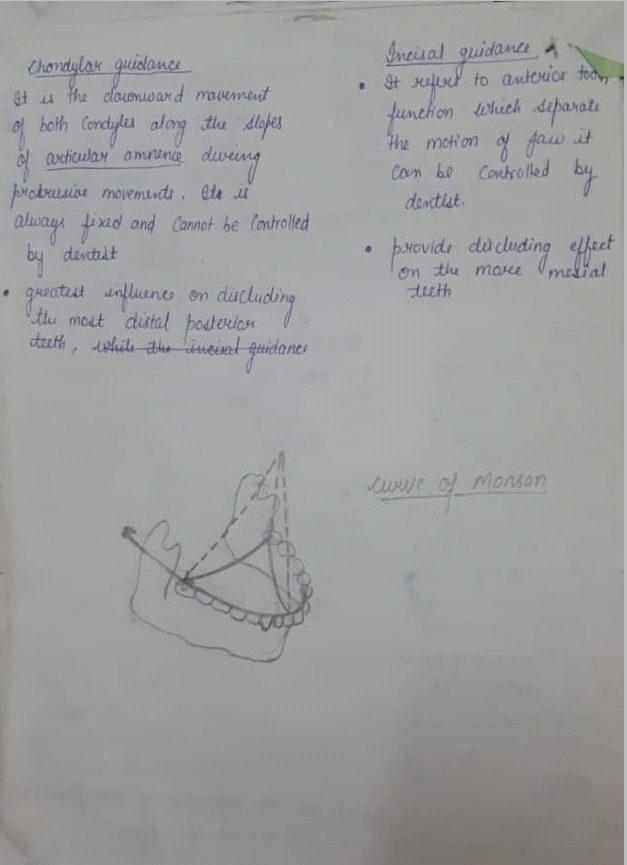 Chondylar guidance
It is the downward movement
of both Condyles along the slopes
of articular amnence during
protrusive movements. Its is
always fixed and Cannot be Controlled
by dentist
• greatest influence on discluding
the most distal posterior
teeth, while the incisal guidance
Incisal guidance
• It refers to anterior tooth
function which separate
the motion of jaw it
can be controlled by
dentist.
• provide discluding effect
on the more mesial
teeth
Curve of Monson